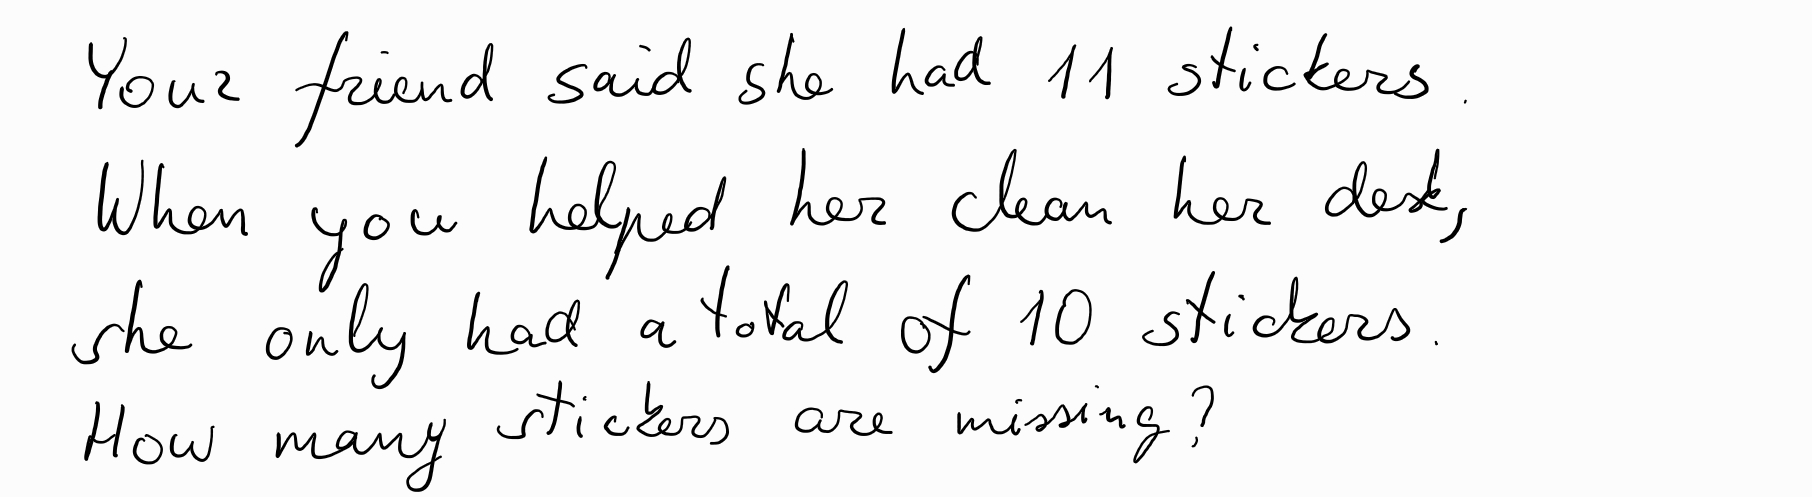 Your friend said she had 11 stickers.
When you helped her clean her desk,
she only had a total of 10 stickers.
How many stickers are missing?